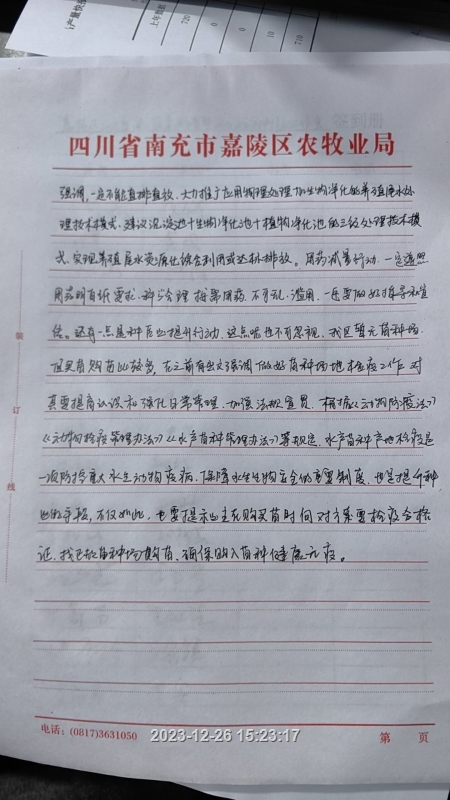 产量快
上年
720
0
0
10
710
四川省南充市嘉陵区农牧业局
强调,一是不能直排直放,大力推广应用物理处理加生物净化的养殖尾水处
理技术模式、建议沉淀池十生物净化池十植物净化池的三级处理技术模
式,实现养殖尾水资源化综合利用或达标排放。用药减量行动,一定遵照
用药明白纸要求,科学合理按需用药,不可乱、滥用,一定要做好指导和宣
传。还有一点是种质提升行动,这点呢也不可忽视,我区暂无苗种场
但是有购苗比较多,在之前有出文强调做好苗种场地检疫工作,对
其要提高认识和强化日常管理,加强法规宣贯,根据《动物防疫法》
《动物检疫管理办法》《水产苗种管理办法》等规定,水产苗种产地检疫是
一项防控重大水生动物疫病,保障水生生物安全的重要制度,也是提升种
业的手段,不仅如此,也要提示业主在购买苗时间对方索要检疫合格
证,找正规苗种场购苗,确保购入苗种健康无疫。
装
订
线
电话:(0817)3631050
第 页
2023-12-26 15:23:17